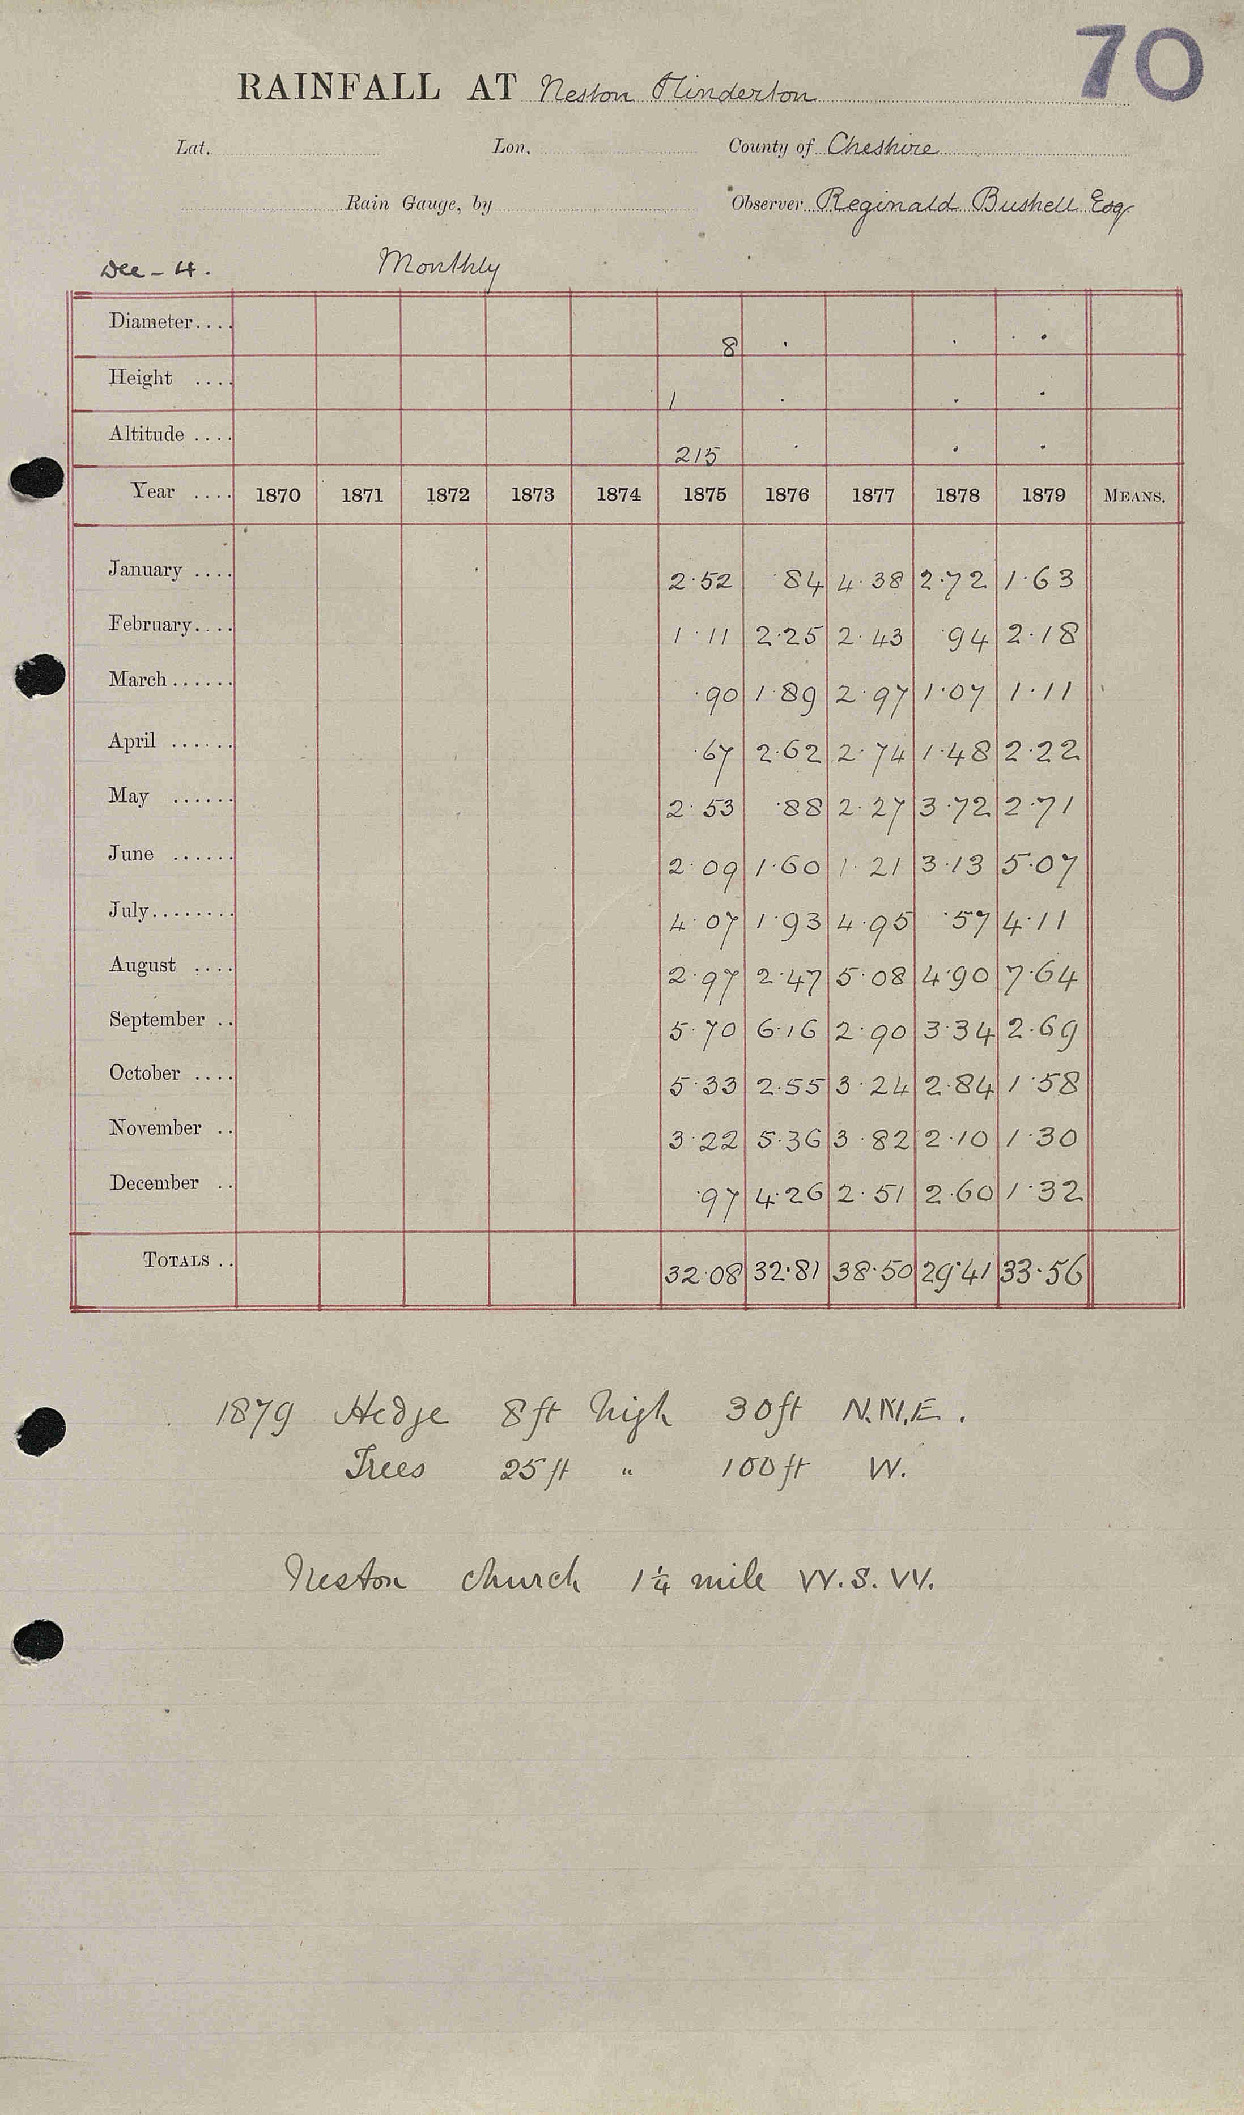 70
RAINFALL AT Neston Hinderton
Lat. Lon. County of Cheshire
Rain Gauge, by Observer Reginald Bushell Esq
Dec - 4. Monthly
Diameter.... 8 . . .
Height .... 1 . . .
Altitude .... 215 . . .
Year .... 1870 1871 1872 1873 1874 1875 1876 1877 1878 1879 MEANS.
January .... 2.52 .84 4.38 2.72 1.63
February.... 1.11 2.25 2.43 .94 2.18
March...... .90 1.89 2.97 1.07 1.11
April ...... .67 2.62 2.74 1.48 2.22
May ...... 2.53 .88 2.27 3.72 2.71
June ...... 2.09 1.60 1.21 3.13 5.07
July........ 4.07 1.93 4.95 .57 4.11
August .... 2.97 2.47 5.08 4.90 7.64
September .. 5.70 6.16 2.90 3.34 2.69
October .... 5.33 2.55 3.24 2.84 1.58
November .. 3.22 5.36 3.82 2.10 1.30
December .. .97 4.26 2.51 2.60 1.32
TOTALS .. 32.08 32.81 38.50 29.41 33.56
1879 Hedge 8ft high 30ft N.N.E.
Trees 25ft " 100ft W.
Neston church 1¼ mile W.S.W.